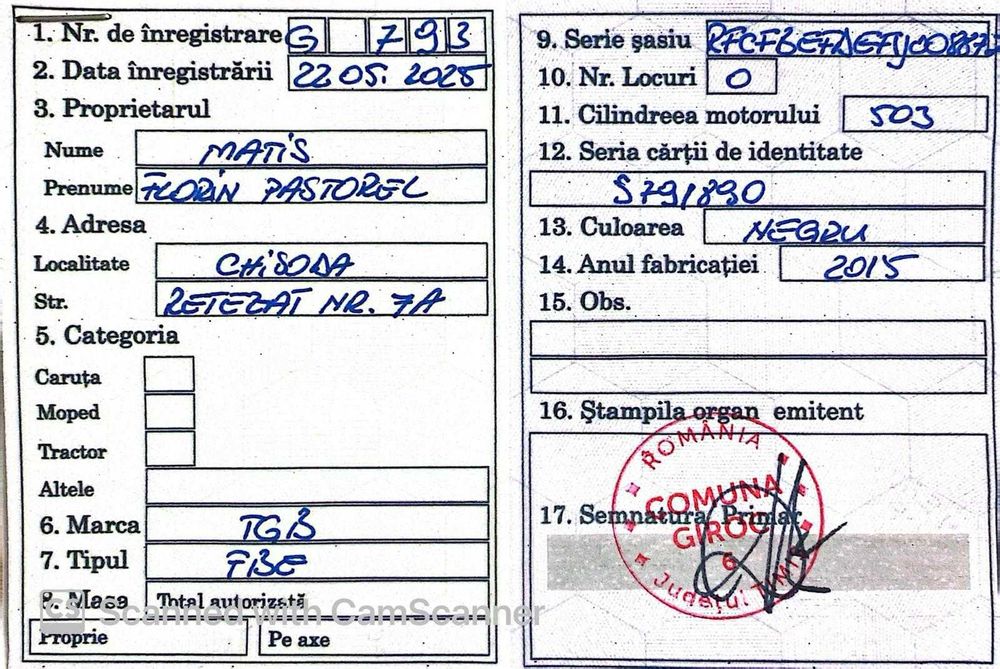 1. Nr. de înregistrare G 793
2. Data înregistrării 22 05. 2025
3. Proprietarul
Nume MATIS
Prenume FLORIN PASTOREL
4. Adresa
Localitate CHISODA
Str. RETEZAT NR. 7A
5. Categoria
Caruța
Moped
Tractor
Altele
6. Marca TGB
7. Tipul FBE
8. Masa Total autorizată
Proprie Pe axe
Scanned with CamScanner
9. Serie șasiu
10. Nr. Locuri 0
11. Cilindreea motorului 503
12. Seria cărții de identitate
13. Culoarea NEGRU
14. Anul fabricației 2015
15. Obs.
16. Ștampila organ emitent
ROMÂNIA
COMUNA
17. Semnatura Primar
GIROC
6
Județul TIMIȘ